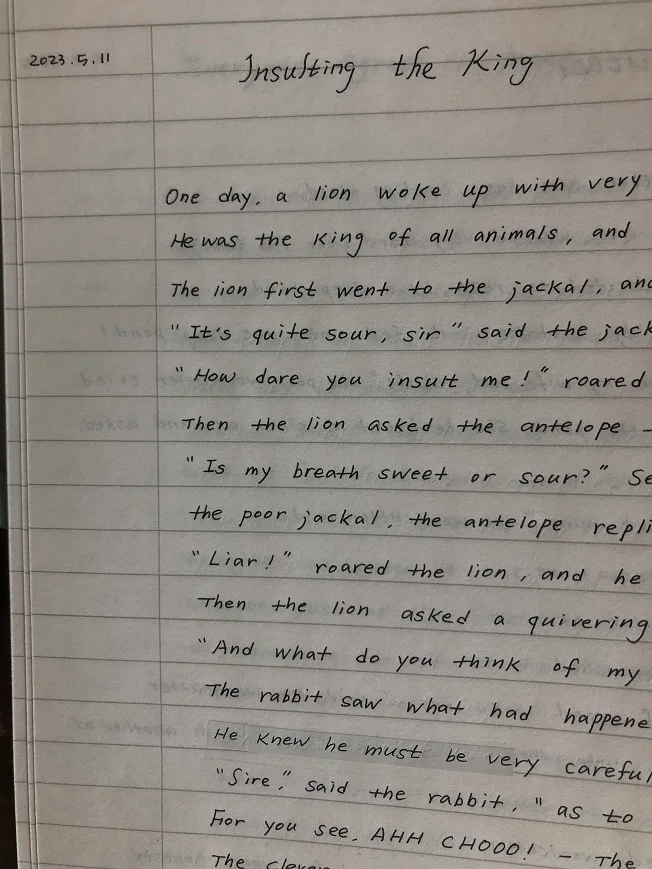 2023.5.11
Insulting the King
One day, a lion woke up with very
He was the King of all animals, and
The lion first went to the jackal, and
"It's quite sour, sir" said the jack
"How dare you insult me!" roared
Then the lion asked the antelope -
"Is my breath sweet or sour?" Se
the poor jackal, the antelope repli
"Liar!" roared the lion, and he
Then the lion asked a quivering
"And what do you think of my
The rabbit saw what had happene
He knew he must be very careful
"Sire," said the rabbit, "as to
For you see, AHH CHOOO! - The
The clever